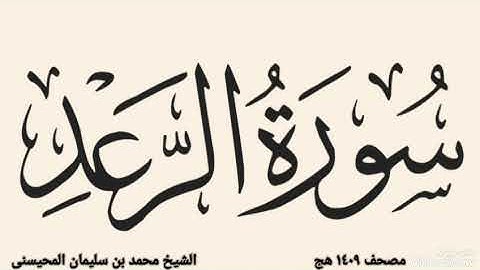 سُورَةُ الرَّعْدِ
مصحف ١٤٠٩ هج
الشيخ محمد بن سليمان المحيسنى